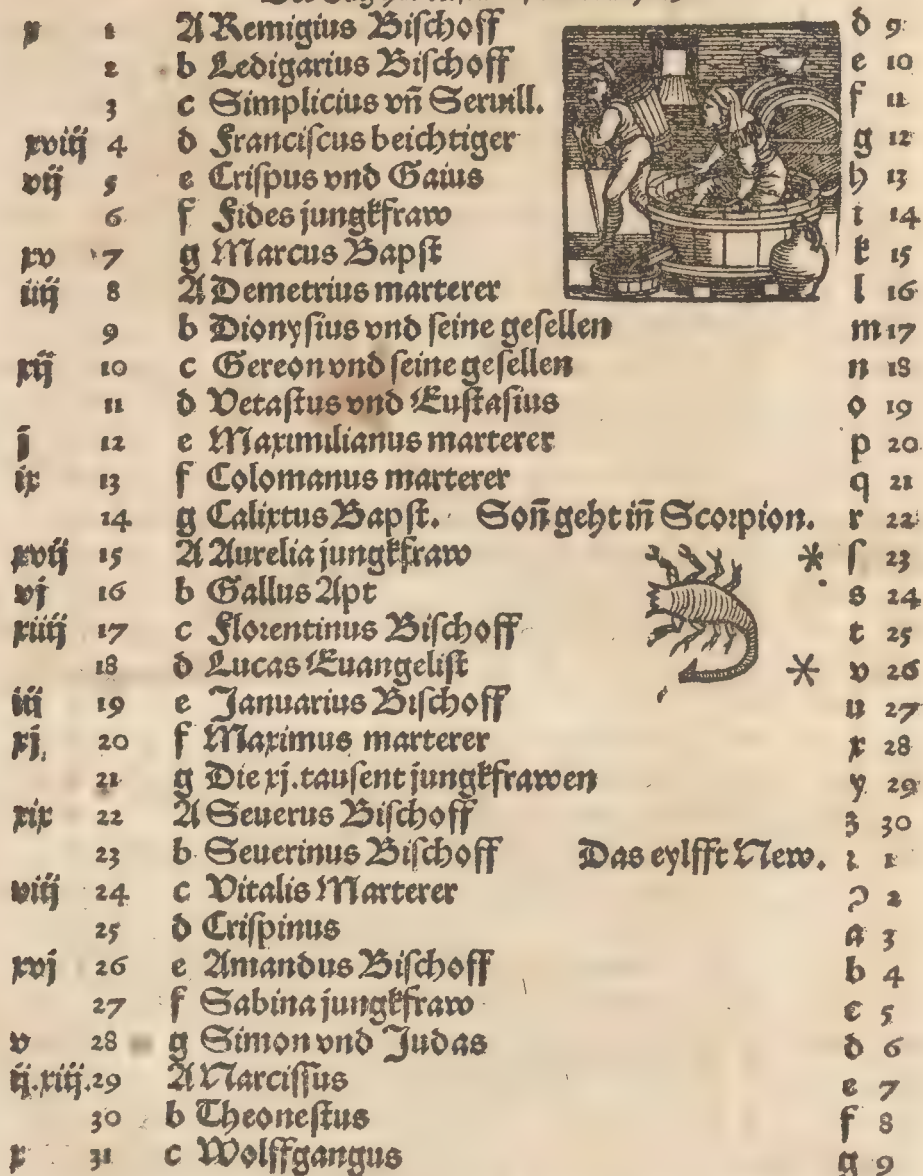 x 1 A Remigius Bischoff d 9
2 b Ledigarius Bischoff e 10
3 c Simplicius vñ Seruill. f 11
xviij 4 d Franciscus beichtiger g 12
vij 5 e Crispus vnd Gaius h 13
6 f Fides jungkfraw i 14
xv 7 g Marcus Bapst k 15
iiij 8 A Demetrius marterer l 16
9 b Dionysius vnd seine gesellen m 17
xij 10 c Gereon vnd seine gesellen n 18
11 d Vetastus vnd Eustasius o 19
j 12 e Maximilianus marterer p 20
ix 13 f Colomanus marterer q 21
14 g Calixtus Bapst. Soñ geht iñ Scorpion. r 22
xvij 15 A Aurelia jungkfraw ſ 23
vj 16 b Gallus Apt s 24
xiiij 17 c Florentinus Bischoff t 25
18 d Lucas Euangelist v 26
iij 19 e Januarius Bischoff u 27
xj. 20 f Maximus marterer x 28
21 g Die xj. tausent jungkfrawen y 29
xix 22 A Seuerus Bischoff z 30
23 b Seuerinus Bischoff Das eylfft New. 1
viij 24 c Vitalis Marterer 2
25 d Crispinus a 3
xvj 26 e Amandus Bischoff b 4
27 f Sabina jungkfraw c 5
v 28 g Simon vnd Judas d 6
ij. xiij. 29 A Narcissus e 7
30 b Theonestus f 8
x 31 c Wolffgangus g 9